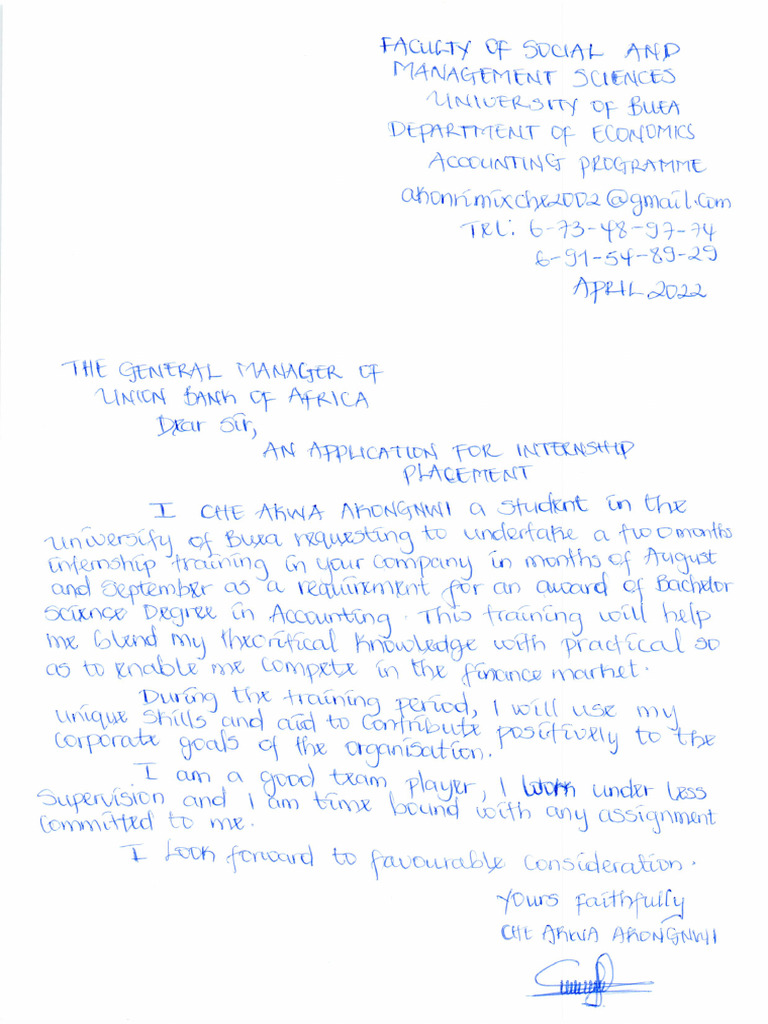 FACULTY OF SOCIAL AND
MANAGEMENT SCIENCES
UNIVERSITY OF BUEA
DEPARTMENT OF ECONOMICS
ACCOUNTING PROGRAMME
akonnimixche2002@gmail.com
TEL: 6-73-48-97-74
6-91-54-89-29
APRIL 2022
THE GENERAL MANAGER OF
UNION BANK OF AFRICA
Dear Sir,
AN APPLICATION FOR INTERNSHIP
PLACEMENT
I CHE AKWA AKONGNWI a student in the
University of Buea requesting to undertake a two months
internship training in your company in months of August
and September as a requirement for an award of Bachelor
Science Degree in Accounting. This training will help
me blend my theoritical knowledge with practical so
as to enable me compete in the finance market.
During the training period, I will use my
unique skills and aid to contribute positively to the
corporate goals of the organisation.
I am a good team player, I work under less
Supervision and I am time bound with any assignment
committed to me.
I Look forward to favourable consideration.
Yours Faithfully
CHE AKWA AKONGNWI